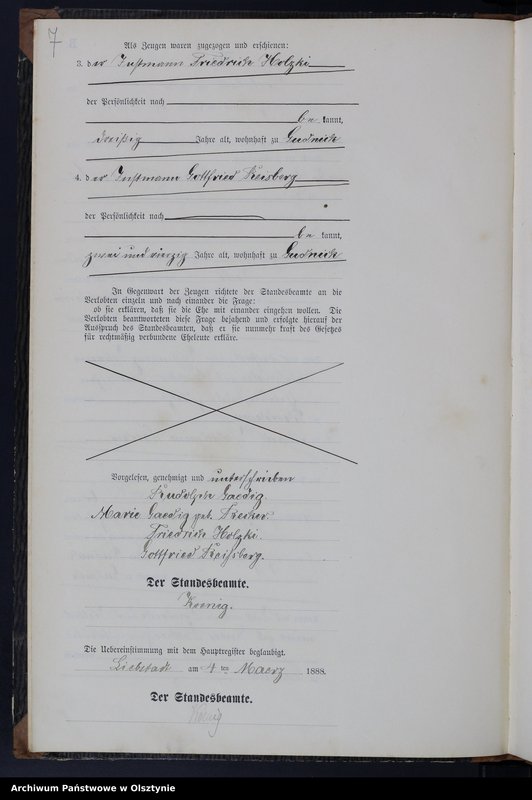 7
Als Zeugen waren zugezogen und erschienen:
3. der Instmann Friedrich Holzki
der Persönlichkeit nach
be kannt,
dreißig Jahre alt, wohnhaft zu Gudnick
4. der Instmann Gottfried Keisberg
der Persönlichkeit nach
be kannt,
zwei und vierzig Jahre alt, wohnhaft zu Gudnick
In Gegenwart der Zeugen richtete der Standesbeamte an die
Verlobten einzeln und nach einander die Frage:
ob sie erklären, daß sie die Ehe mit einander eingehen wollen. Die
Verlobten beantworteten diese Frage bejahend und erfolgte hierauf der
Ausspruch des Standesbeamten, daß er sie nunmehr kraft des Gesetzes
für rechtmäßig verbundene Eheleute erkläre.
Vorgelesen, genehmigt und unterschrieben
Gaedig.
Marie Gaedig geb.
Friedrich Holzki.
Gottfried
Der Standesbeamte.
Koenig.
Die Uebereinstimmung mit dem Hauptregister beglaubigt.
Liebstadt am 4ten Maerz 1888.
Der Standesbeamte.
Koenig
Archiwum Państwowe w Olsztynie